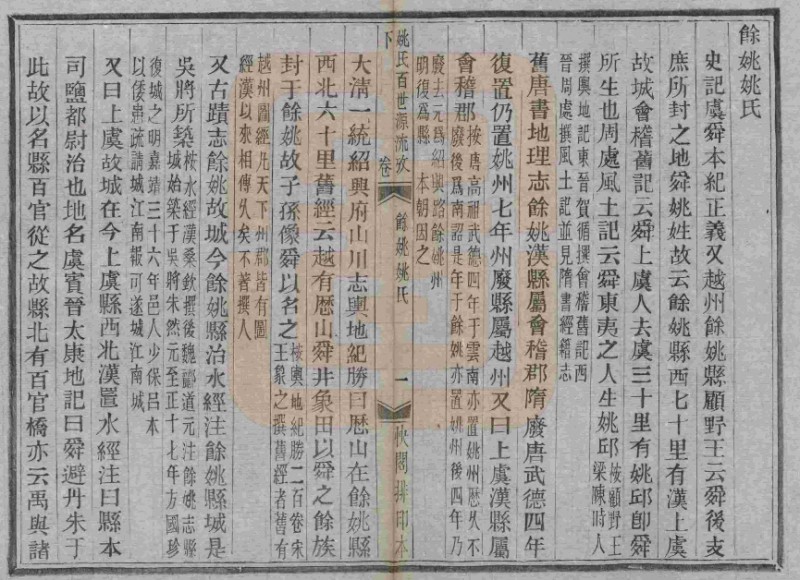 餘姚姚氏
史記虞舜本紀正義又越州餘姚縣顧野王云舜後支
庶所封之地舜姚姓故云餘姚縣西七十里有漢上虞
故城會稽舊記云舜上虞人去虞三十里有姚邱卽舜
所生也周處風土記云舜東夷之人生姚邱按顧野王梁陳時人
撰輿地記東晉賀循撰會稽舊記西
晉周處撰風土記並見隋書經籍志
舊唐書地理志餘姚漢縣屬會稽郡隋廢唐武德四年
復置仍置姚州七年州廢縣屬越州又曰上虞漢縣屬
會稽郡按唐高祖武德四年于雲南亦置姚州歷久不
廢後爲南詔是年于餘姚亦置姚州後四年乃
廢去元爲紹興路餘姚州
明復爲縣 本朝因之
姚氏百世源流攷 卷下 餘姚姚氏 一 快閣排印本
大清一統紹興府山川志輿地紀勝曰歷山在餘姚縣
西北六十里舊經云越有歷山舜井象田以舜之餘族
封于餘姚故子孫像舜以名之按輿地紀勝二百卷宋
王象之撰舊經者舊有
越州圖經凡天下州郡皆有圖
經漢以來相傳久矣不著撰人
又古蹟志餘姚故城今餘姚縣治水經注餘姚縣城是
吳將所築按水經漢桑欽撰後魏酈道元注餘姚志縣
城始築于吳將朱然元至正十七年方國珍
復城之明嘉靖三十六年邑人少保呂本
以倭患疏請城江南報可遂城江南城
又曰上虞故城在今上虞縣西北漢置水經注曰縣本
司鹽都尉治也地名虞賓晉太康地記曰舜避丹朱于
此故以名縣百官從之故縣北有百官橋亦云禹與諸